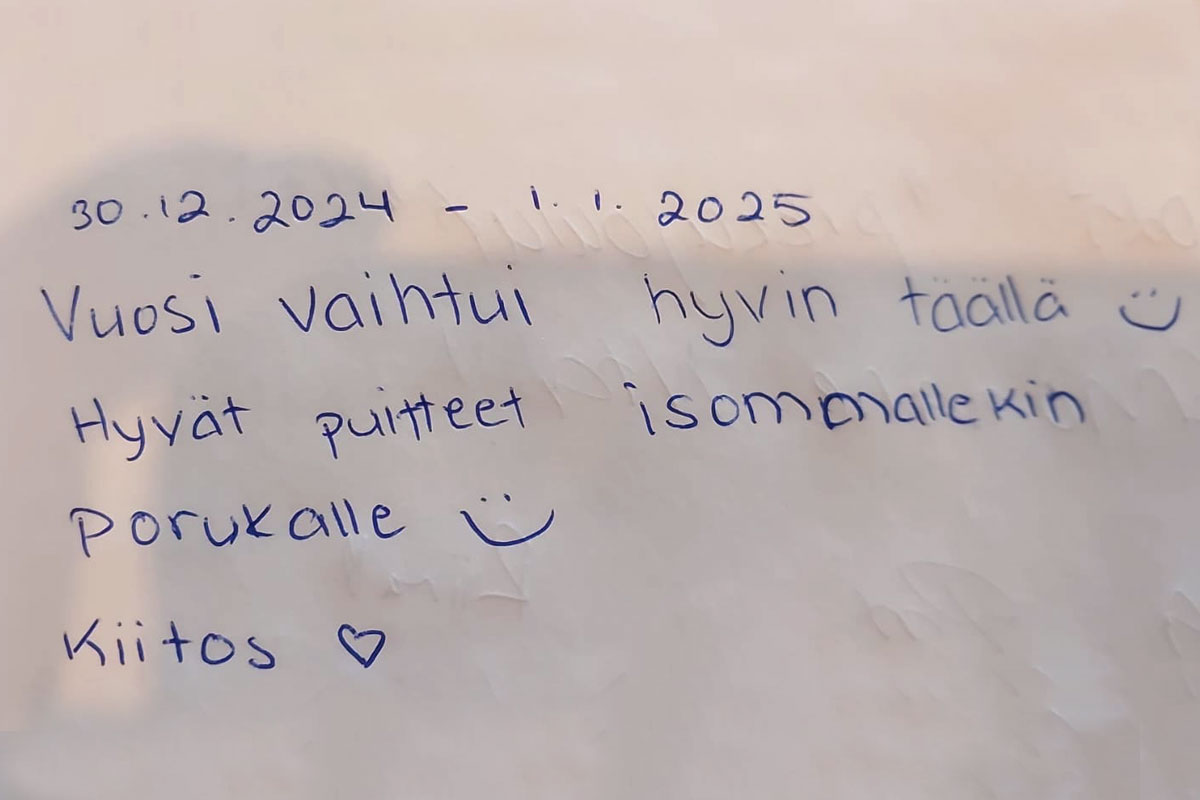 30.12.2024 - 1.1.2025
Vuosi vaihtui hyvin täällä ü
Hyvät puitteet isommallekin
porukalle ü
Kiitos ♡